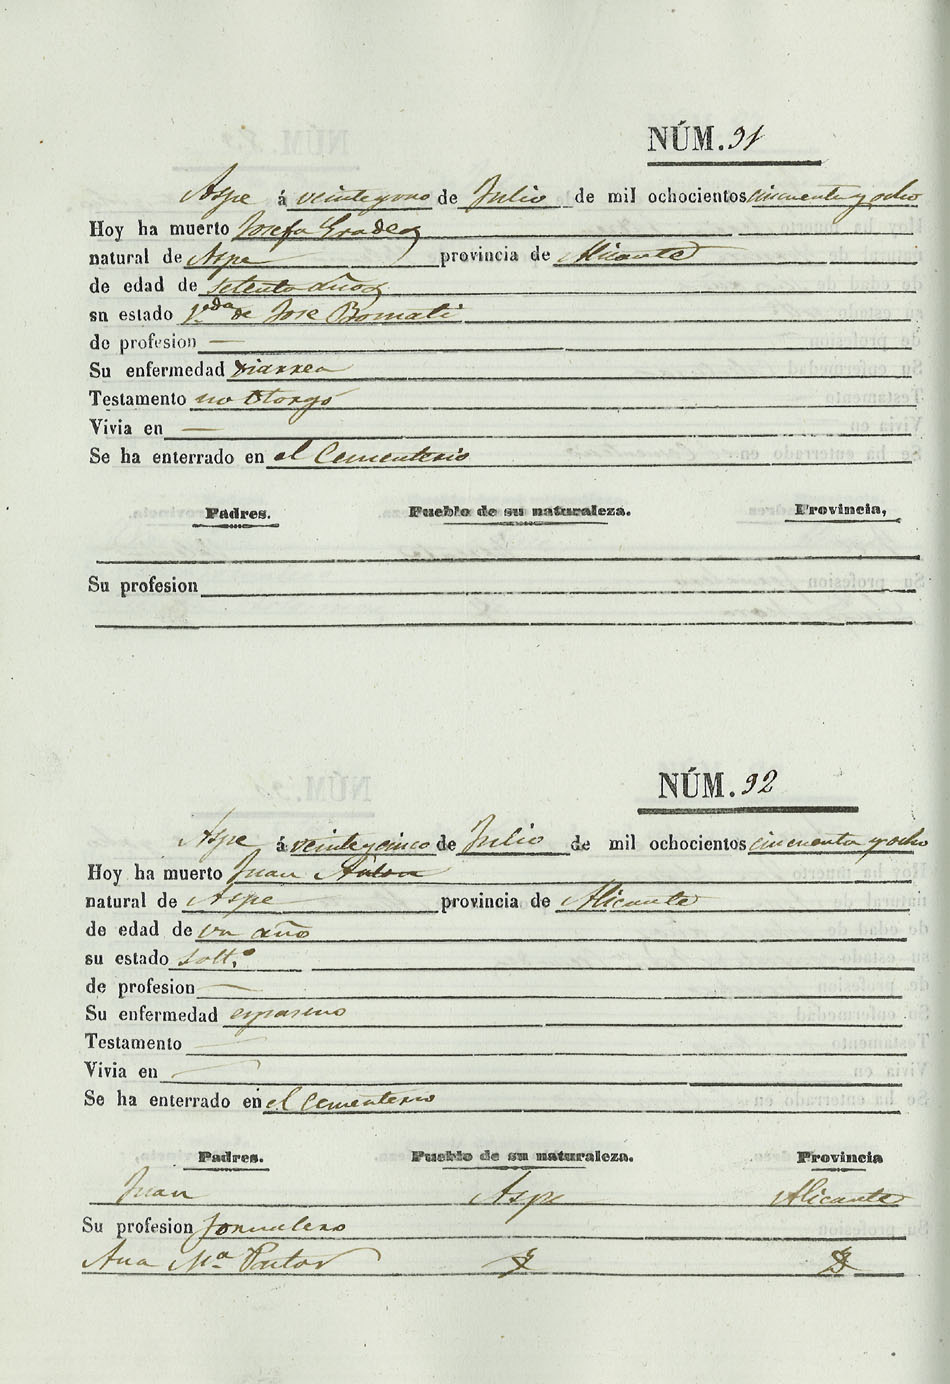 NÚM. 91
Aspe á veinte y uno de Julio de mil ochocientos cincuenta y ocho
Hoy ha muerto Josefa Gradez
natural de Aspe provincia de Alicante
de edad de setenta años
sn estado V.da de Jose Bomati
de profesion —
Su enfermedad diarrea
Testamento no Otorgó
Vivia en —
Se ha enterrado en el Cementerio
Padres. Pueblo de su naturaleza. Provincia,
Su profesion
NÚM. 92
Aspe á veinte y cinco de Julio de mil ochocientos cincuenta y ocho
Hoy ha muerto Juan
natural de Aspe provincia de Alicante
de edad de un año
su estado solt.º
de profesion —
Su enfermedad espasmo
Testamento —
Vivia en —
Se ha enterrado en el Cementerio
Padres. Pueblo de su naturaleza. Provincia
Juan Aspe Alicante
Su profesion Jornalero
Ana M.ª Pastor